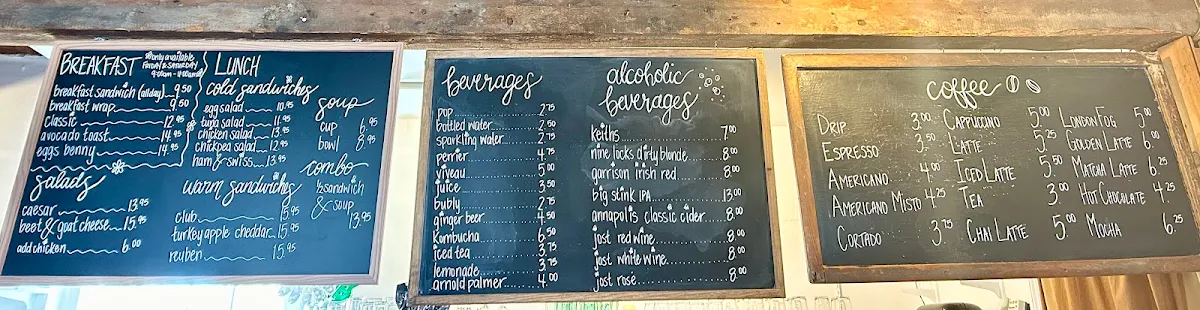 BREAKFAST
*only available
FRIDAY & SATURDAY
9:00am - 11:00am
breakfast sandwich (all day) 9.50
breakfast wrap 9.50
classic 12.95
avocado toast 14.95
eggs benny 14.95
salads
caesar 13.95
beet & goat cheese 15.95
add chicken 6.00
LUNCH
cold sandwiches
egg salad 10.95
tuna salad 11.95
chicken salad 13.95
chickpea salad 12.95
ham & swiss 13.95
warm sandwiches
club 15.95
turkey apple cheddar 15.95
reuben 15.95
soup
cup 6.95
bowl 8.95
combo
½ sandwich
& soup
13.95
beverages
pop 2.75
bottled water 2.50
sparkling water 2.75
perrier 4.75
viveau 5.00
juice 3.50
bubly 2.75
ginger beer 4.50
kombucha 6.50
iced tea 3.75
lemonade 3.75
arnold palmer 4.00
alcoholic
beverages
keiths 7.00
nine locks dirty blonde 8.00
garrison irish red 8.00
big stink IPA 13.00
annapolis classic cider 8.00
jost red wine 8.00
jost white wine 8.00
jost rose 8.00
coffee
DRIP 3.00
ESPRESSO 3.50
AMERICANO 4.00
AMERICANO MISTO 4.25
CORTADO 3.75
CAPPUCINO 5.00
LATTE 5.25
ICED LATTE 5.50
TEA 3.00
CHAI LATTE 5.00
LONDON FOG 5.00
GOLDEN LATTE 6.00
MATCHA LATTE 6.25
HOT CHOCOLATE 4.25
MOCHA 6.25